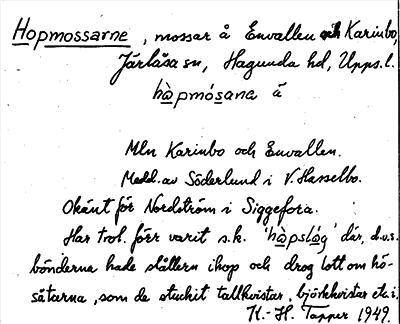 Hopmossarne, mossar å Envallen och Karinbo,
Järlåsa sn, Hagunda hd, Upps. l.
hàpmósana ä
Mln Karinbo och Envallen.
Medd. av Söderlund i V. Hasselbo.
Okänt för Nordström i Siggefora.
Har trol. förr varit s.k. 'hàpslåg' där, d.v.s.
bönderna hade slåttern ihop och drog lott om hö-
såtarna, som de stuckit tallkvistar, björkkvistar etc. i.
K.-H. Tapper 1949.